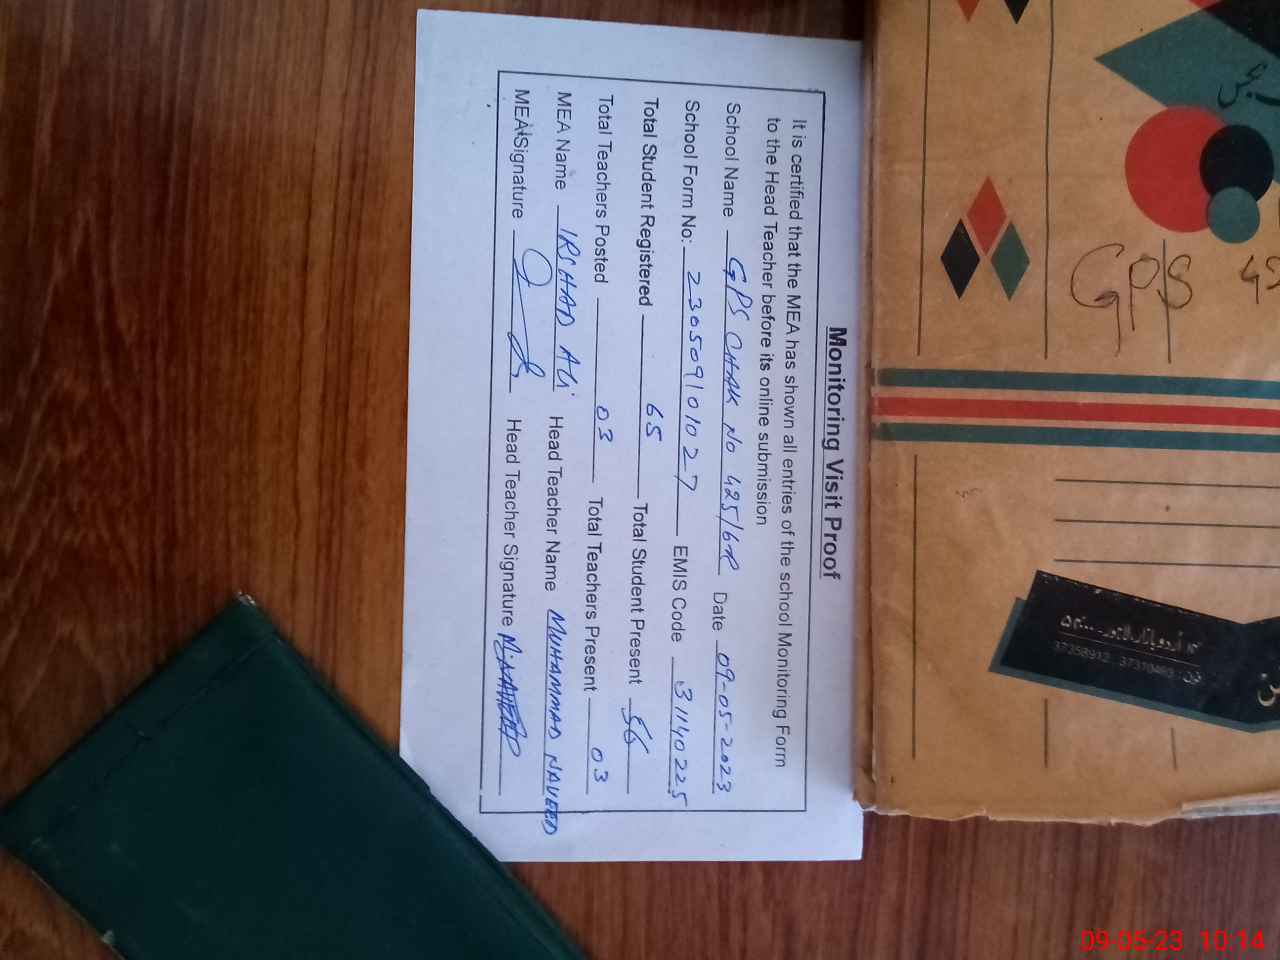 Monitoring Visit Proof
It is certified that the MEA has shown all entries of the school Monitoring Form
to the Head Teacher before its online submission
School Name GPS CHAK NO 425/6R Date 09-05-2023
School Form No: 230509101027 EMIS Code 31140225
Total Student Registered 65 Total Student Present 56
Total Teachers Posted 03 Total Teachers Present 03
MEA Name IRSHAD ALI Head Teacher Name MUHAMMAD NAVEED
MEA Signature Head Teacher Signature
GPS
37358912 37310495
09-05-23 10:14